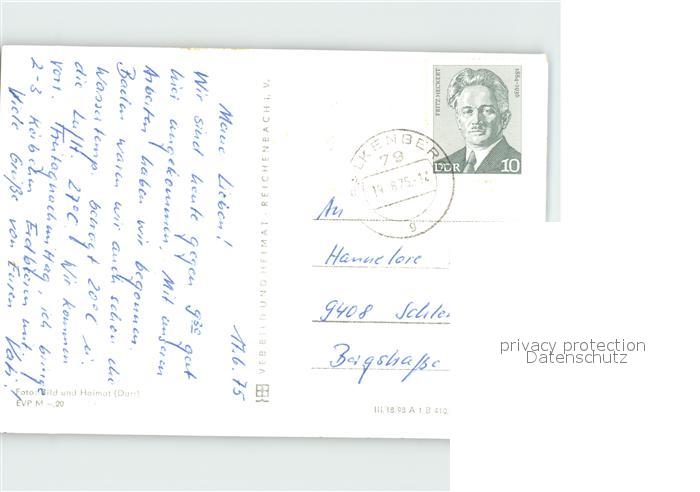 17.6.75
Meine Lieben!
Wir sind heute gegen 9³⁰ gut
hier angekommen. Mit unseren
Arbeiten haben wir begonnen.
Baden waren wir auch schon die
Wassertemp. beträgt 20°C u.
die Luft 27°C. Wir kommen
von Freitagnachmittag, ich bringe
2-3 Körbchen Erdbeeren mit
Viele Grüße von Euren
Foto: Bild und Heimat
EVP M -,20
VEB BILD UND HEIMAT REICHENBACH I. V.
FRITZ HECKERT
1884-1936
DDR 10
79
g
An
Hannelore
9408
Bergstraße
III.18.98 A 1 B 410
privacy protection
Datenschutz